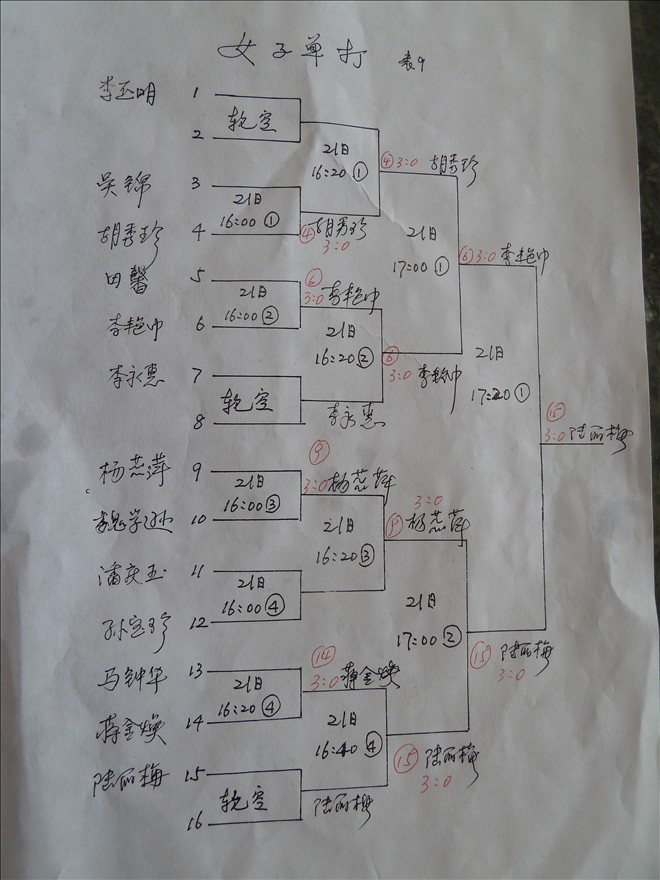 女子单打 表9
李玉明 1
2 轮空
吴锦 3
胡秀珍 4
田馨 5
李艳巾 6
李永惠 7
8 轮空
杨燕萍 9
10
潘庆玉 11
孙宝珍 12
马钟华 13
蒋金焕 14
陆丽梅 15
16 轮空
21日
16:00 ①
21日
16:00 ②
21日
16:00 ③
21日
16:00 ④
21日
16:20 ④
④ 胡秀珍
3:0
⑥
3:0 李艳巾
李永惠
⑨
3:0 杨燕萍
⑭
3:0 蒋金焕
陆丽梅
21日
16:20 ①
21日
16:20 ②
21日
16:20 ③
21日
16:40 ④
④ 3:0 胡秀珍
⑥
3:0 李艳巾
3:0
杨燕萍
⑮ 陆丽梅
3:0
21日
17:00 ①
21日
17:00 ②
⑥ 3:0 李艳巾
⑮ 陆丽梅
3:0
21日
17:20 ①
⑮
3:0 陆丽梅